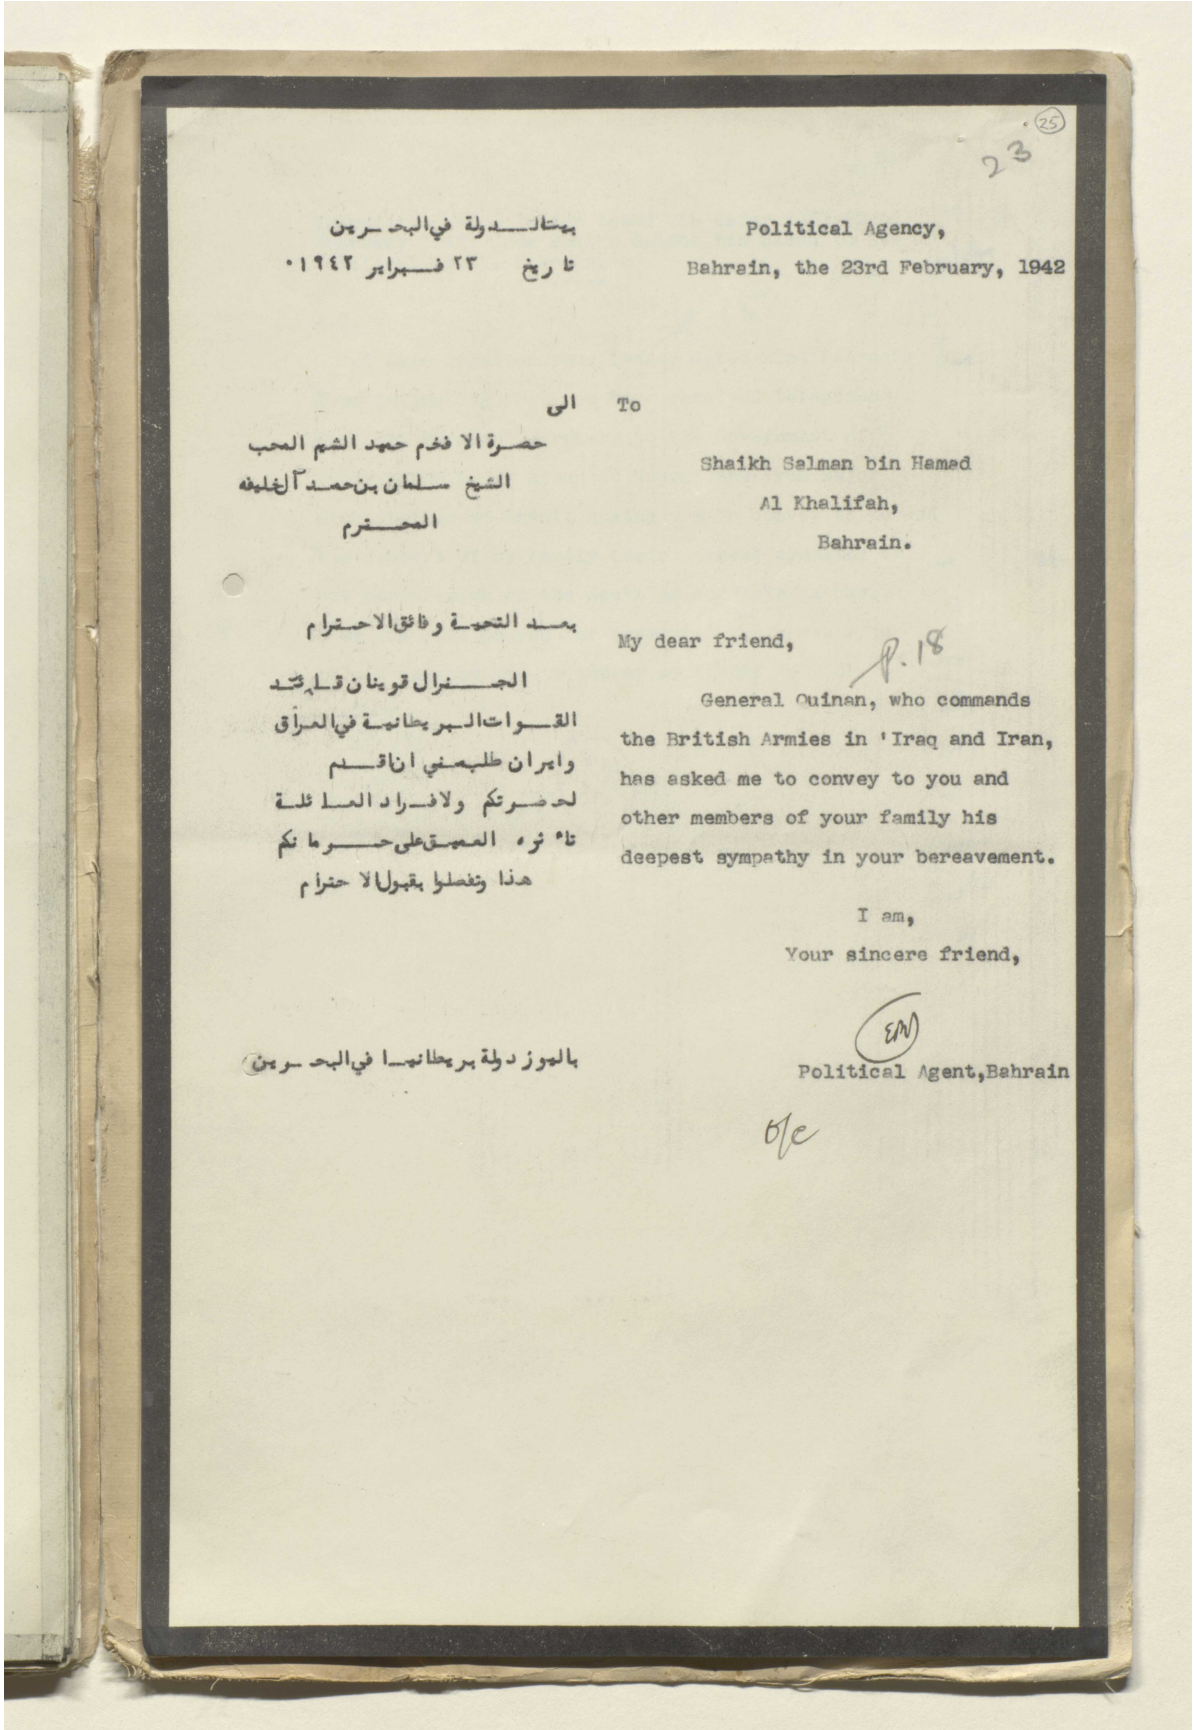 25
23
Political Agency,
Bahrain, the 23rd February, 1942
To
Shaikh Salman bin Hamad
Al Khalifah,
Bahrain.
My dear friend,
P. 18
General Quinan, who commands
the British Armies in 'Iraq and Iran,
has asked me to convey to you and
other members of your family his
deepest sympathy in your bereavement.
I am,
Your sincere friend,
Political Agent,Bahrain
o/c
بيت الدولة في البحرين
تاريخ ٢٣ فبراير ١٩٤٢٠
الى
حضرة الافخم حميد الشيم المحب
الشيخ سلمان بن حمد آل خليفه
المحترم
بعد التحية وفائق الاحترام
الجنرال قوينان قائد
القوات البريطانية في العراق
وايران طلب مني ان اقدم
لحضرتكم ولافراد العائلة
تاءثره العميق على حرمانكم
هذا وتفضلوا بقبول الاحترام
باليوز دولة بريطانيا في البحرين